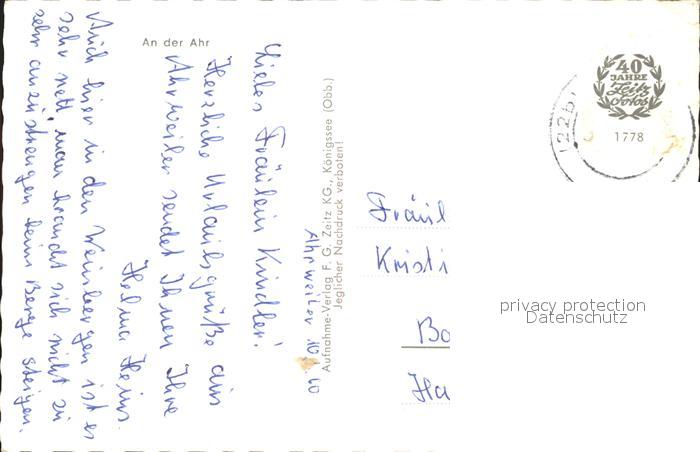 An der Ahr
Ahrweiler 10.
Liebes Fräulein Kindler!
Herzliche Urlaubsgrüße aus
Ahrweiler sendet Ihnen Ihre
Helma Heins.
Auch hier in den Weinbergen ist es
sehr nett, man braucht sich nicht zu
sehr anzustrengen beim Berge steigen.
Aufnahme-Verlag F. G. Zeitz KG., Königssee (Obb.)
Jeglicher Nachdruck verboten!
40
JAHRE
Zeitz
Fotos
1778
Fräul
Kristi
Bo
Ha
privacy protection
Datenschutz